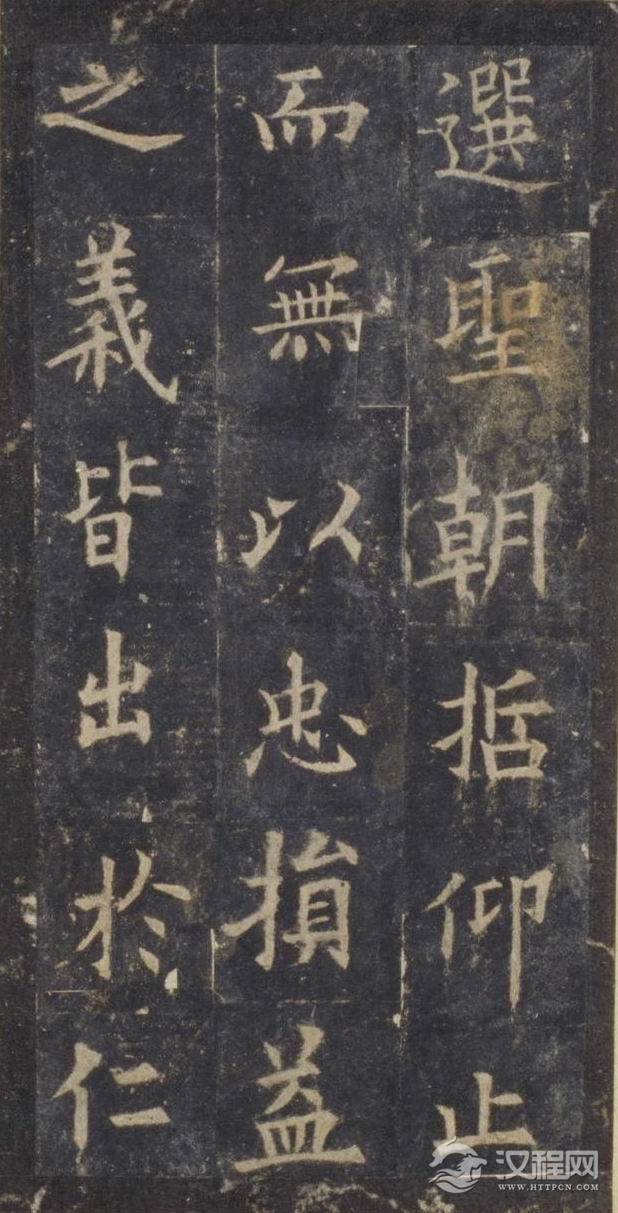 選聖朝括仰止
而無以忠損益
之義皆出於仁
汉程网
WWW.HTTPCN.COM